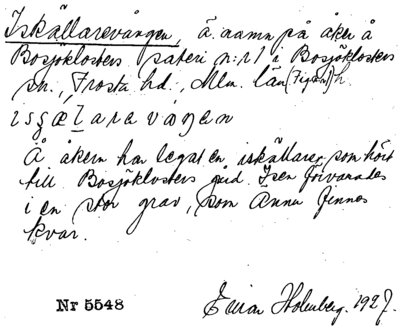 Iskällarevången, ä. namn på åker å
Bosjöklosters säteri n:r 1 i Bosjöklosters
sn., Frosta hd., Mlm. län
isʒæḷaravåŋen
Å åkern har legat en iskällare, som hört
till Bosjöklosters gård. Isen förvarades
i en stor grav, som ännu finnes
kvar.
Nr 5548
Einar Holmberg. 1927.